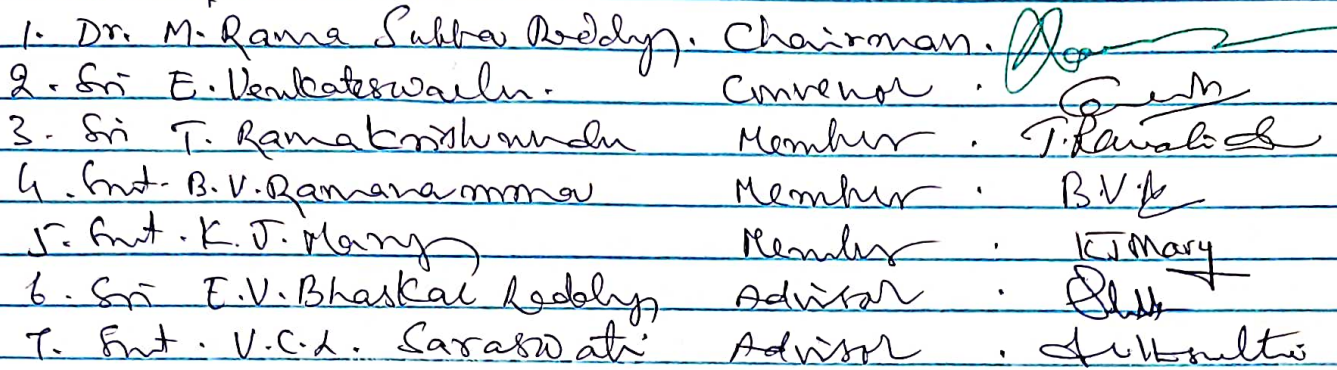 1. Dr. M. Rama Subba Reddy. Chairman.
2. Sri E. Venkateswarlu. Convenor .
3. Sri T. Ramakrishnudu Member .
4. Smt. B.V. Ramanamma Member . B.V.
5. Smt. K.J. Mary Member . KJ Mary
6. Sri E.V. Bhaskar Reddy, Advisor .
7. Smt. V.C.L. Saraswati Advisor .